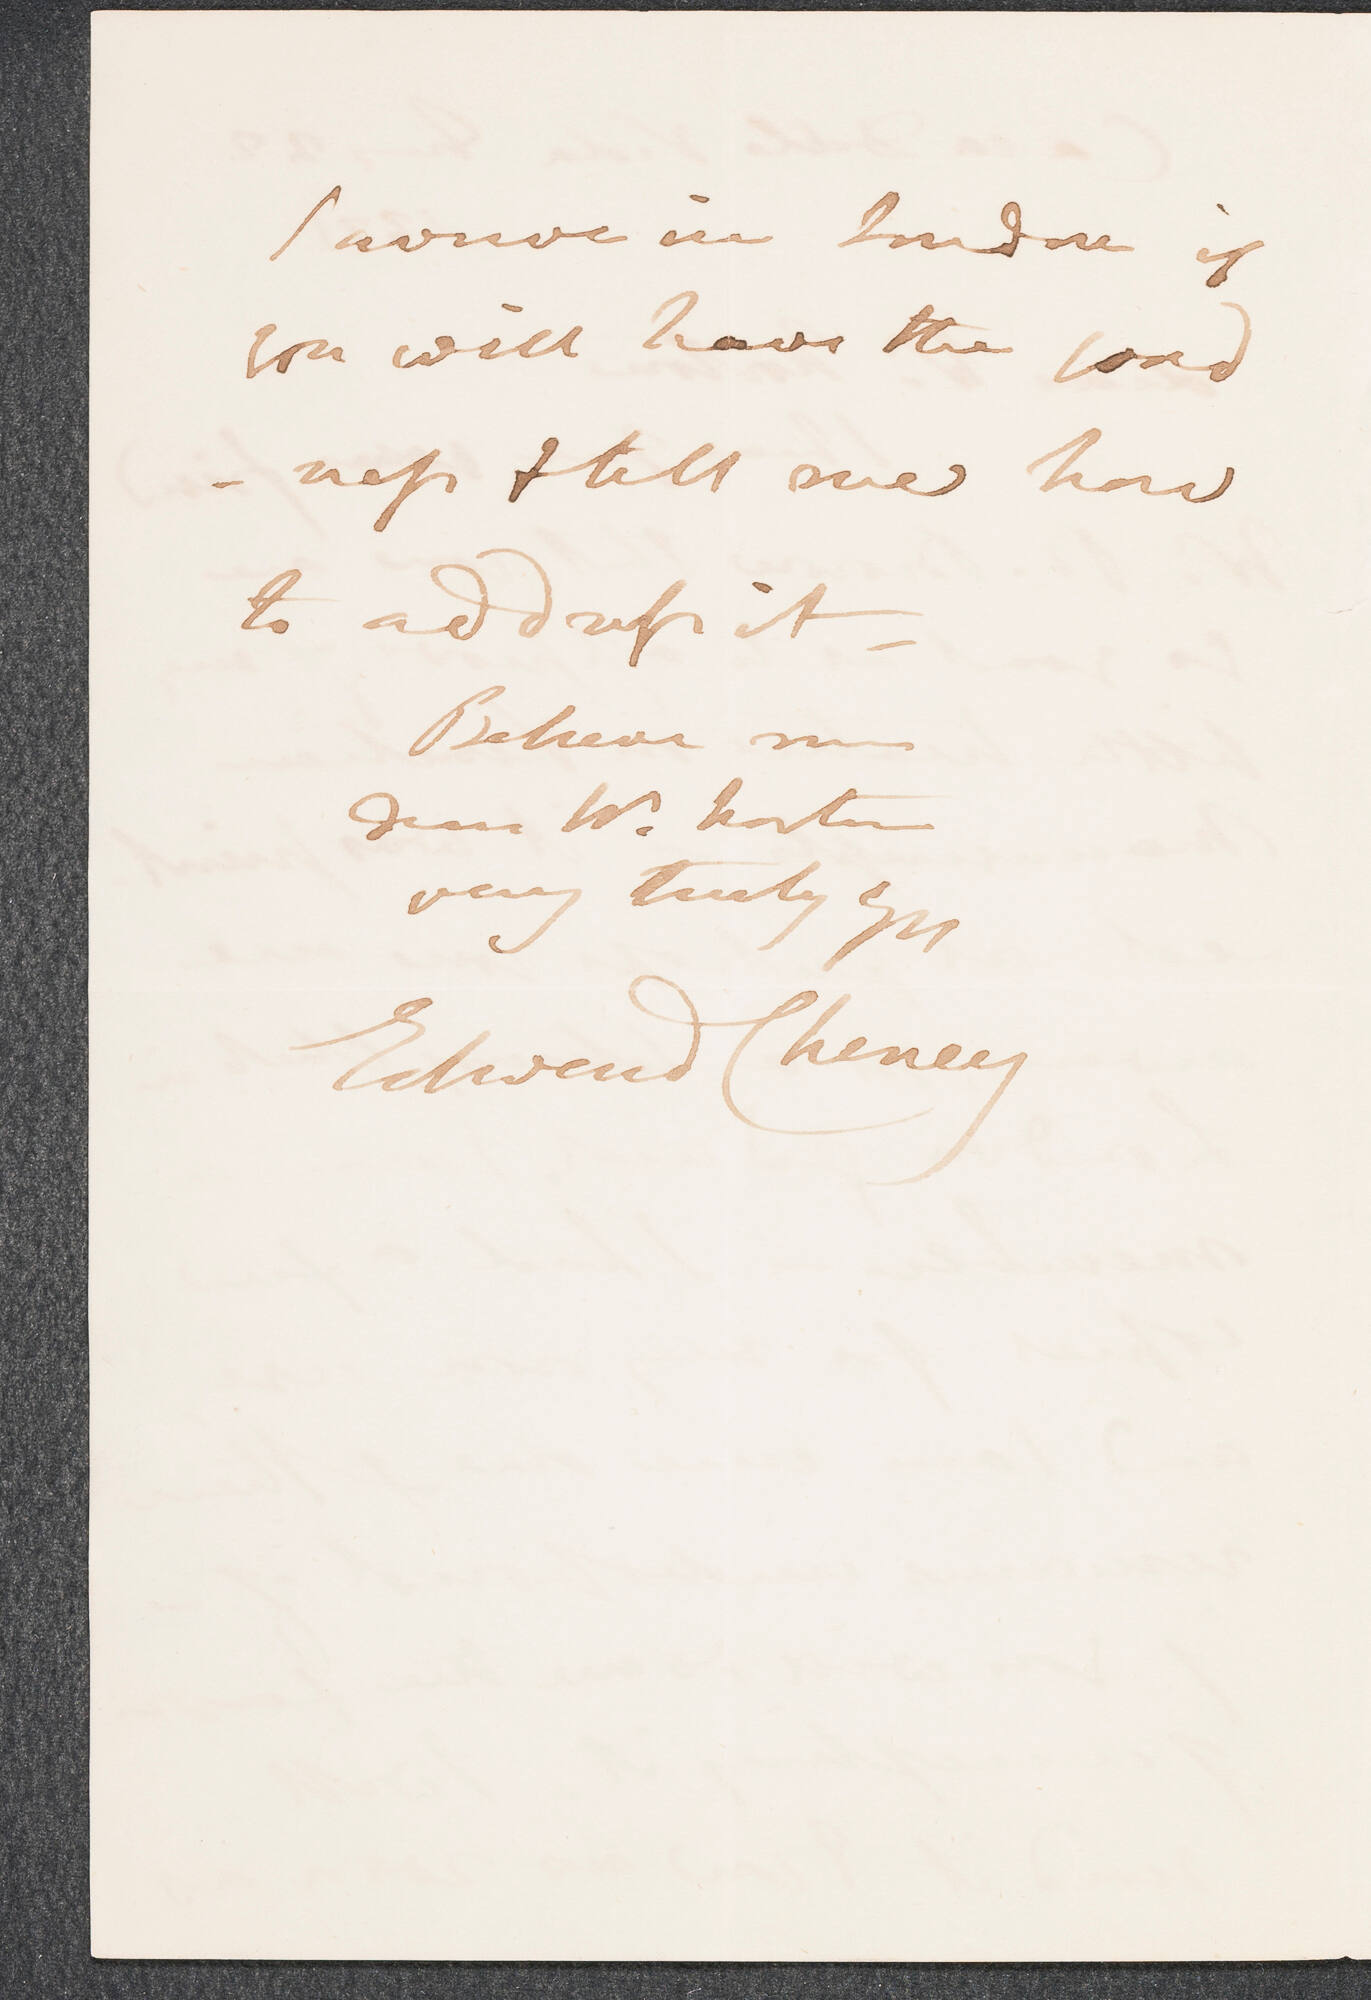 I arrive in London if
you will have the good
- ness & tell me how
to address it –
Believe me
dear Mr. Norton
very truly yrs
Edward Cheney